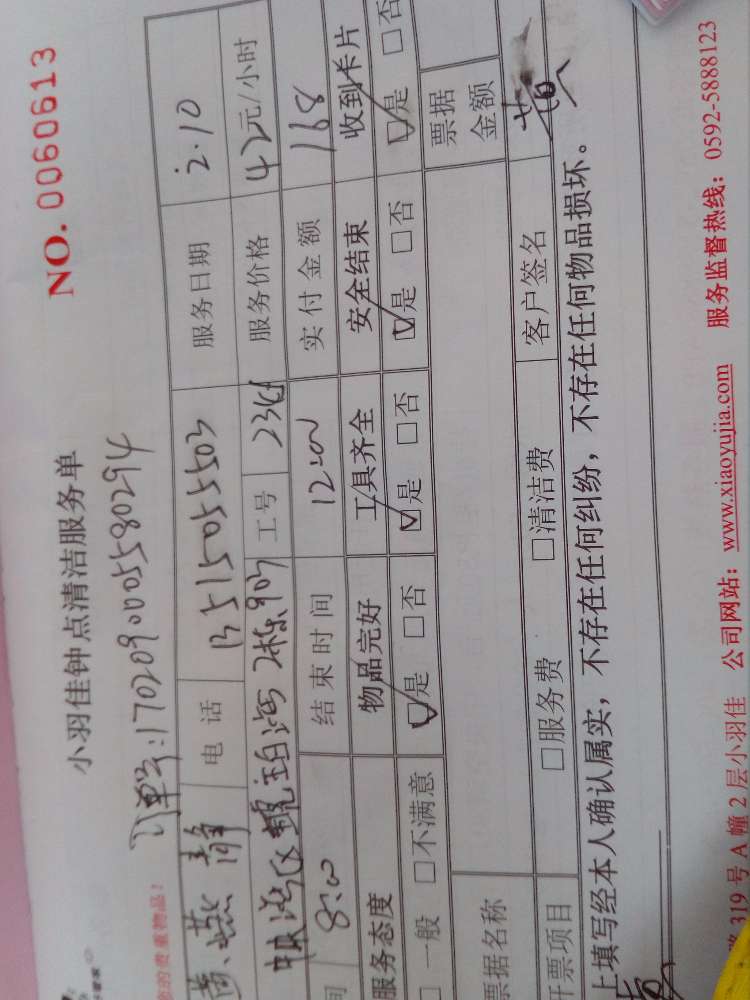 小羽佳钟点清洁服务单
NO. 0060613
的贵重物品!
订单号:1702090005580294
黄燕静 电话 13515055503 服务日期 2.10
2栋907 工号 服务价格 42元/小时
间 8:00 结束时间 12:00 实付金额 168
服务态度 物品完好 工具齐全 安全结束 收到卡片
□一般 □不满意 ☑是 □否 ☑是 □否 ☑是 □否 ☑是 □否
票据名称 票据金额
开票项目 □服务费 □清洁费 客户签名 黄
上填写经本人确认属实,不存在任何纠纷,不存在任何物品损坏。
路 319 号 A 幢 2 层小羽佳 公司网站:www.xiaoyujia.com 服务监督热线:0592-5888123